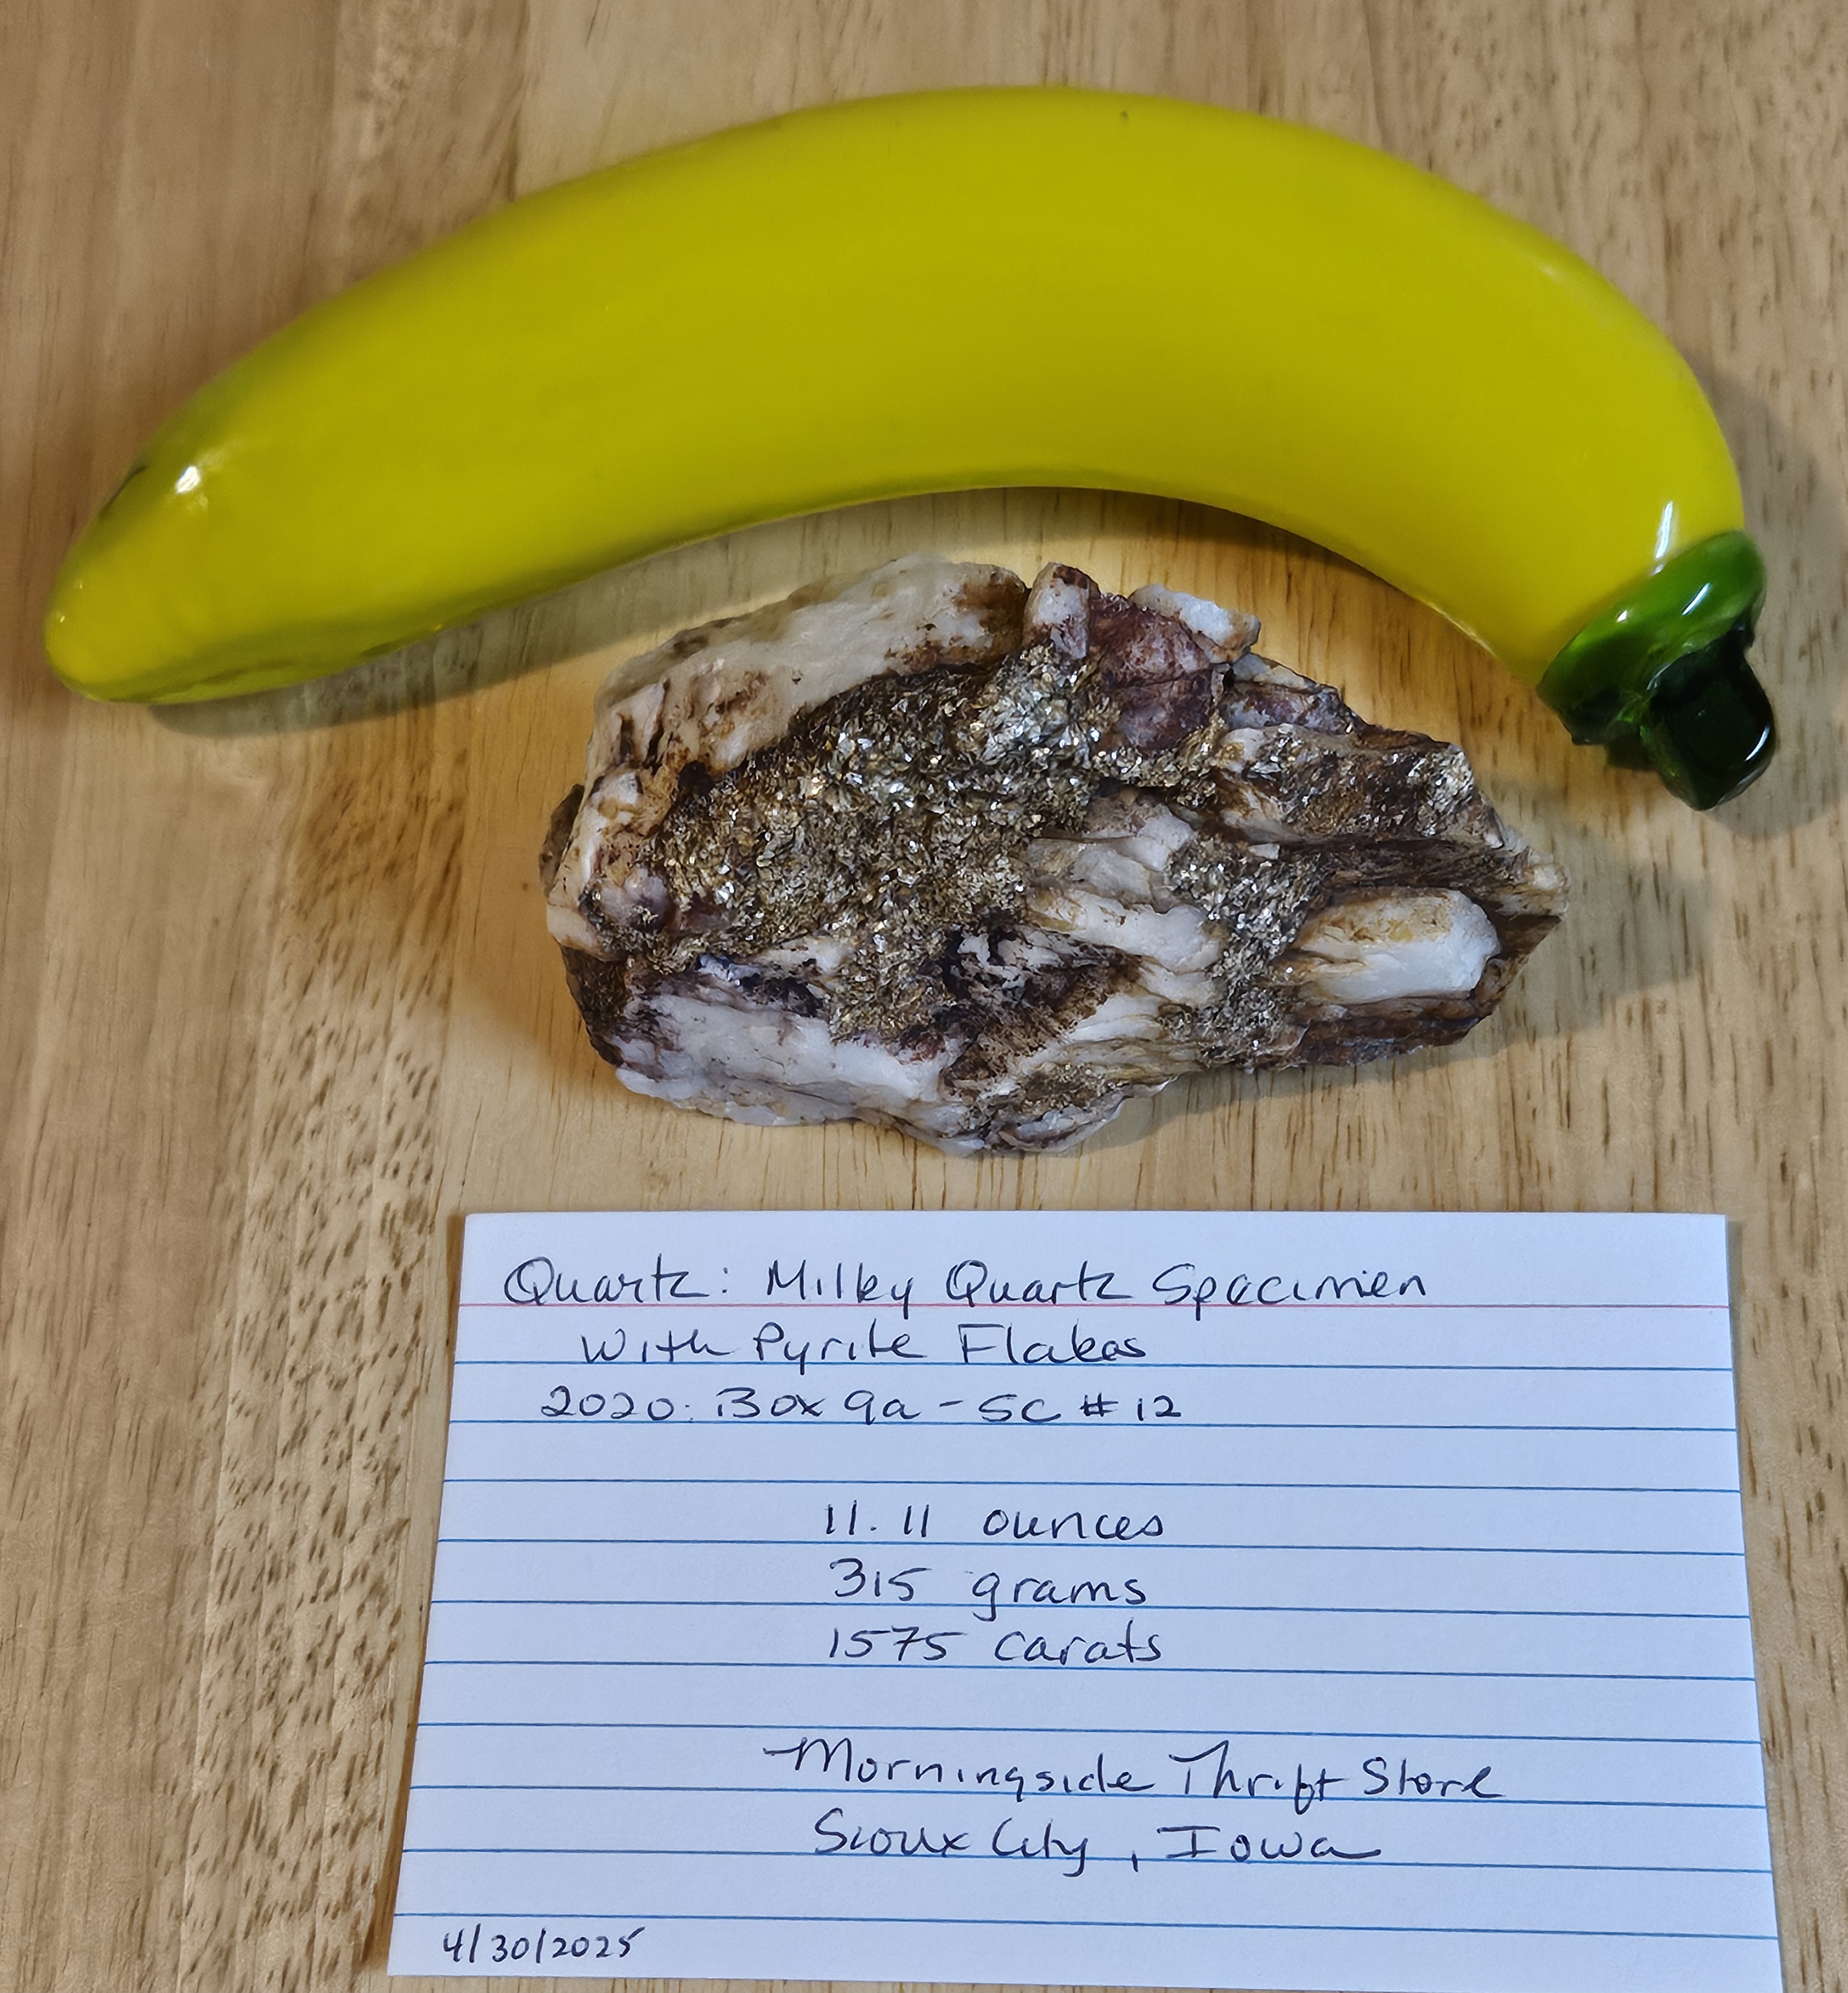 Quartz: Milky Quartz Specimen
With Pyrite Flakes
2020: Box 9a - SC #12
11.11 ounces
315 grams
1575 carats
Morningside Thrift Store
Sioux City, Iowa
4/30/2025